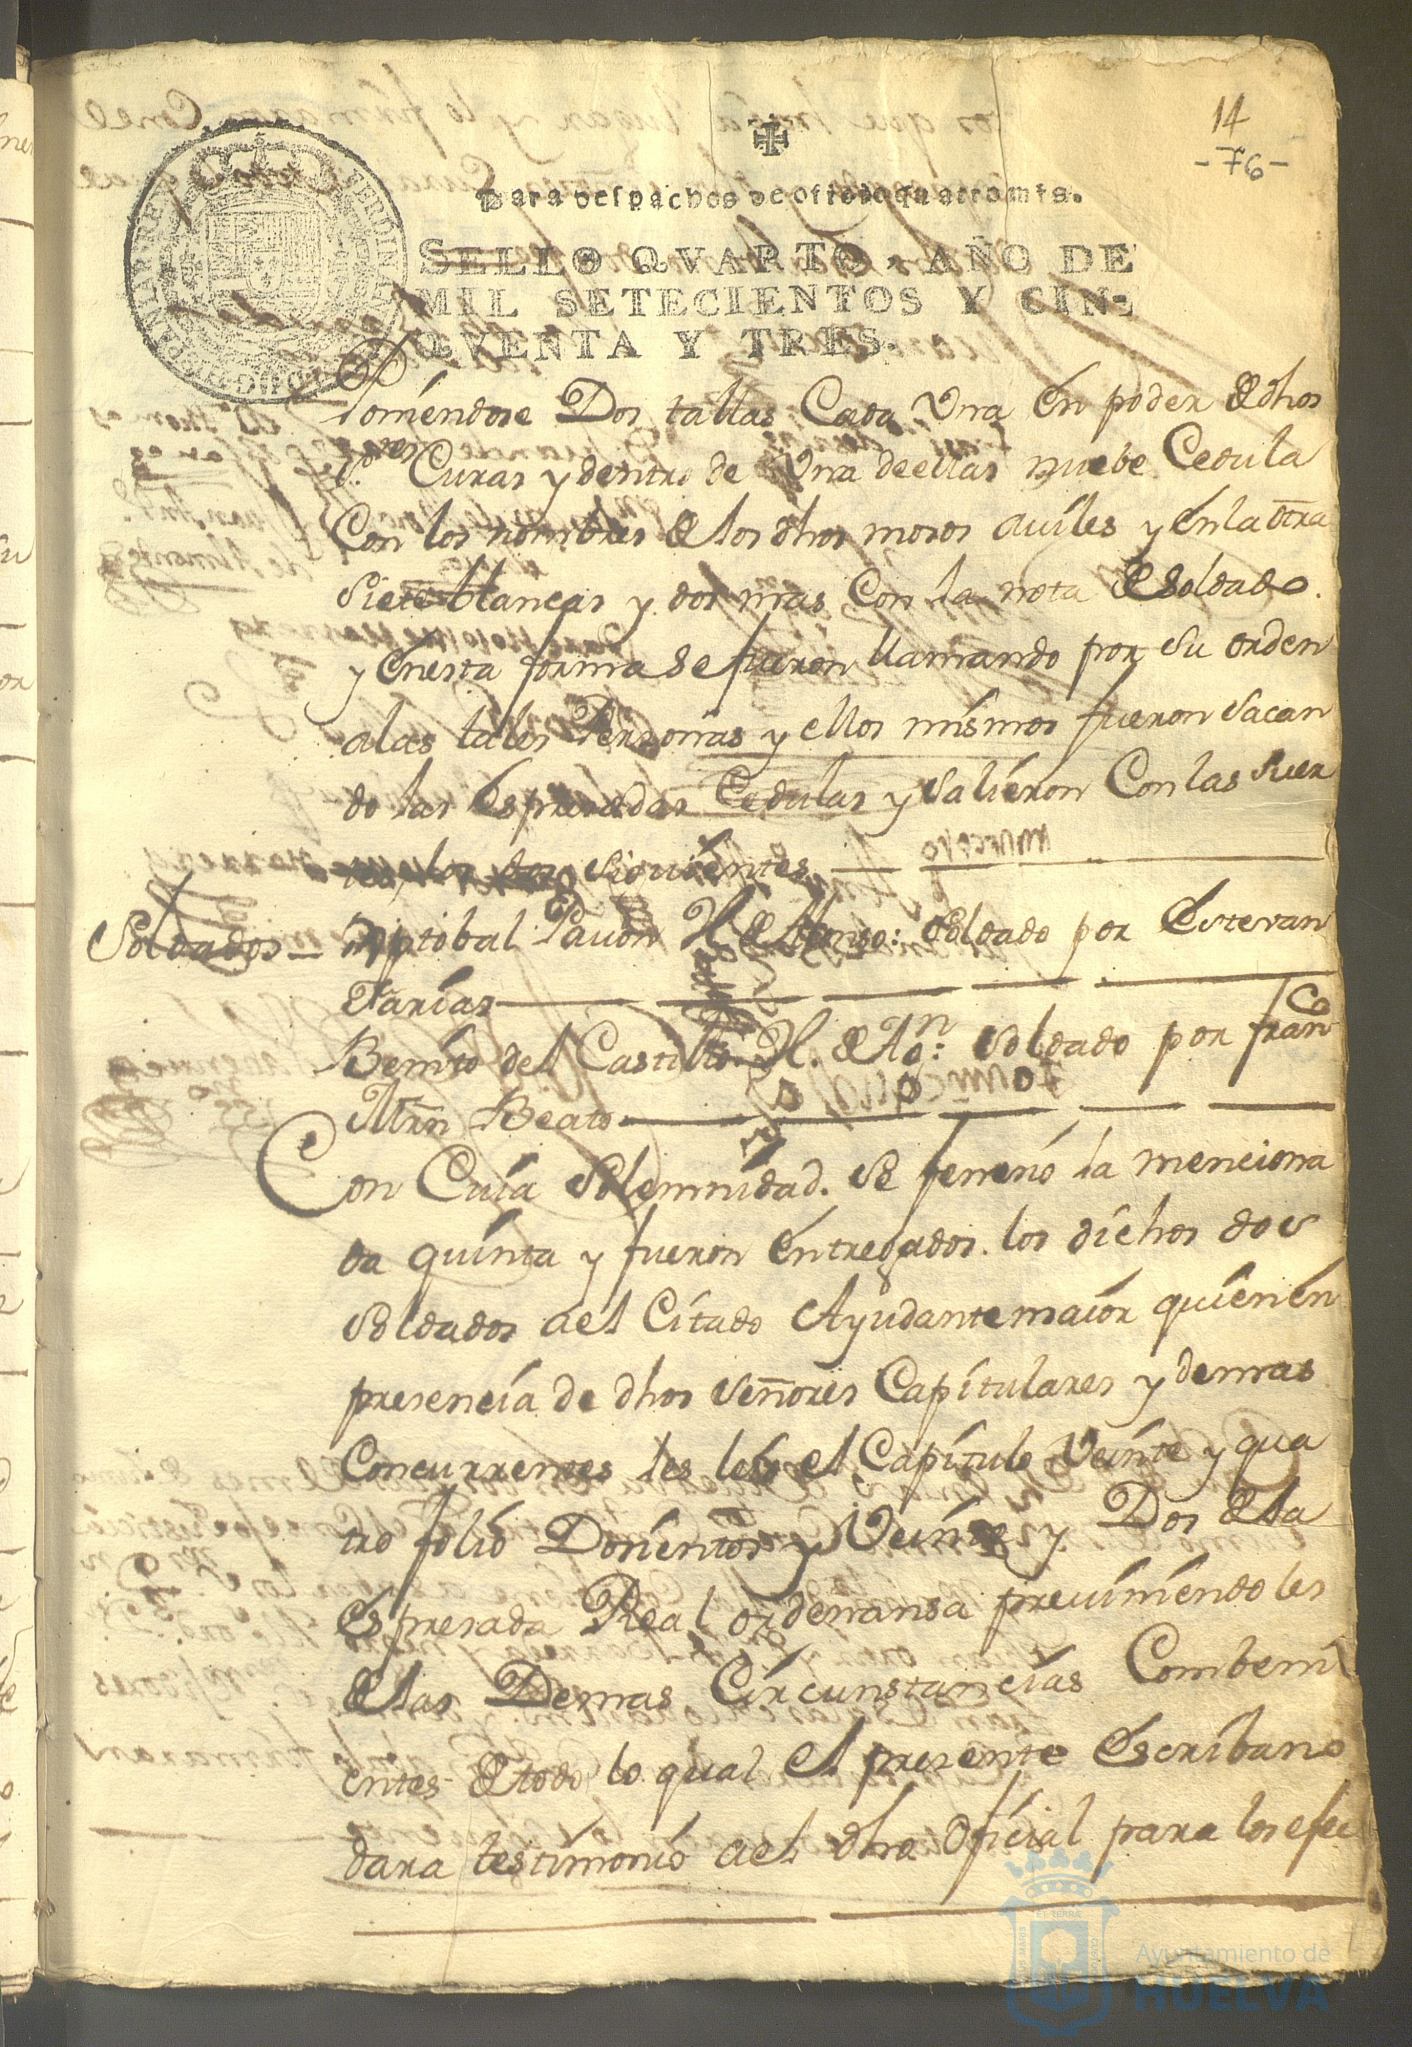 14
-76-
Para despachos de oficio quatro mrs.
SELLO QVARTO, AÑO DE
MIL SETECIENTOS Y CIN-
QVENTA Y TRES.
Poniendose Dos tallas Cada Vna En poder de dhos
Sres Curas y dentro de Vna deellas nuebe Cedula
Con los nombres de los dhos mosos aviles y en la otra
Siete blancas y dos mas Con la nota de Soldado.
y enesta forma se fueron llamando por su orden
alas tales Personas y ellos mismos fueron Sacan
do las Espresadas Cedulas y Salieron Con las Suer
tes los dos siguientes
Soldados
Xptobal Pavon H. de Alonso: Soldado por Estevan
Farias
Benito del Castillo H. de Anº: Soldado por franco
Mrn Beato
Con Cuia Solemnidad. Se feneció la menciona
da quinta y fueron Entregados los dichos dos
Soldados ael Citado Ayudante maior quien en
presencia de dhos Señores Capitulares y demas
Concurrentes les leió el Capitulo Veinte y qua
tro folio Dosientos y Veinte y Dos de la
espresada Real ordenansa previniendoles
de las Demas Circunstancias Combeni
entes de todo lo qual el presente Escribano
dara testimonio ael dho Oficial para los efec
Ayuntamiento de
HUELVA